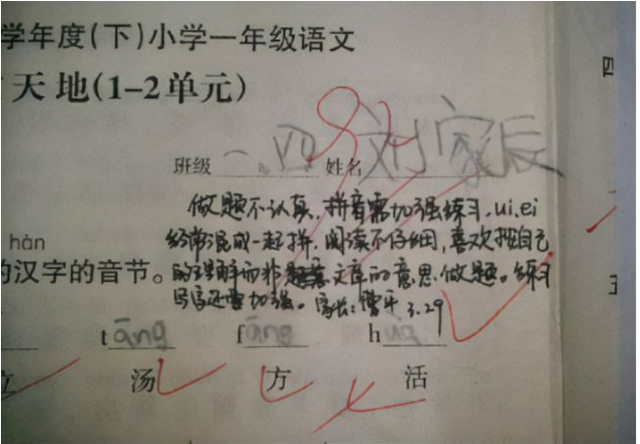 学年度(下)小学一年级语文
天地(1-2单元)
四
班级 一.四 姓名 刘家辰
做题不认真,拼音需加强练习,ui,ei
经常混成一起拼,阅读不仔细,喜欢按自己
的理解而非文章的意思做题。练习
写字还需加强。家长: 3.29
hàn
的汉字的音节。
t āng f āng h
立 汤 方 活